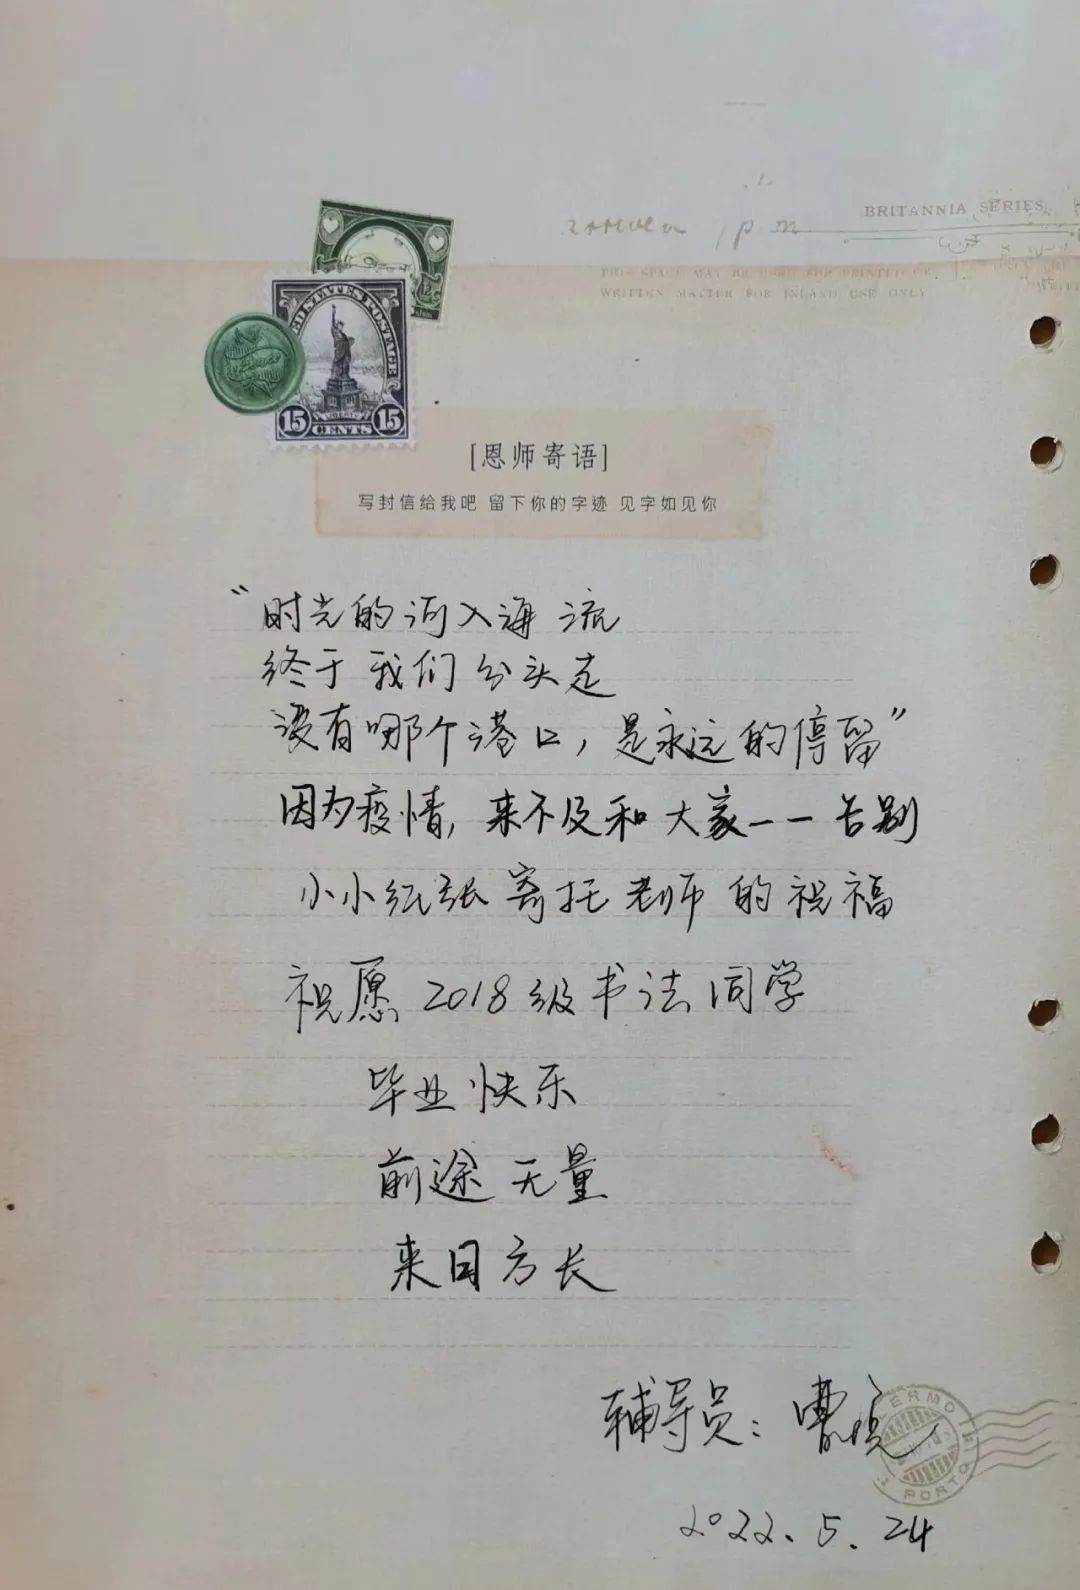 BRITANNIA SERIES
THIS SPACE MAY BE USED FOR PRINTED OR
WRITTEN MATTER FOR INLAND USE ONLY
STATES POSTAGE
LIBERTY
15 CENTS 15
[恩师寄语]
写封信给我吧 留下你的字迹 见字如见你
“时光的河入海流
终于我们分头走
没有哪个港口,是永远的停留”
因为疫情,来不及和大家一一告别
小小纸张寄托老师的祝福
祝愿2018级书法同学
毕业快乐
前途无量
来日方长
辅导员:曹
PORTO
2022.5.24